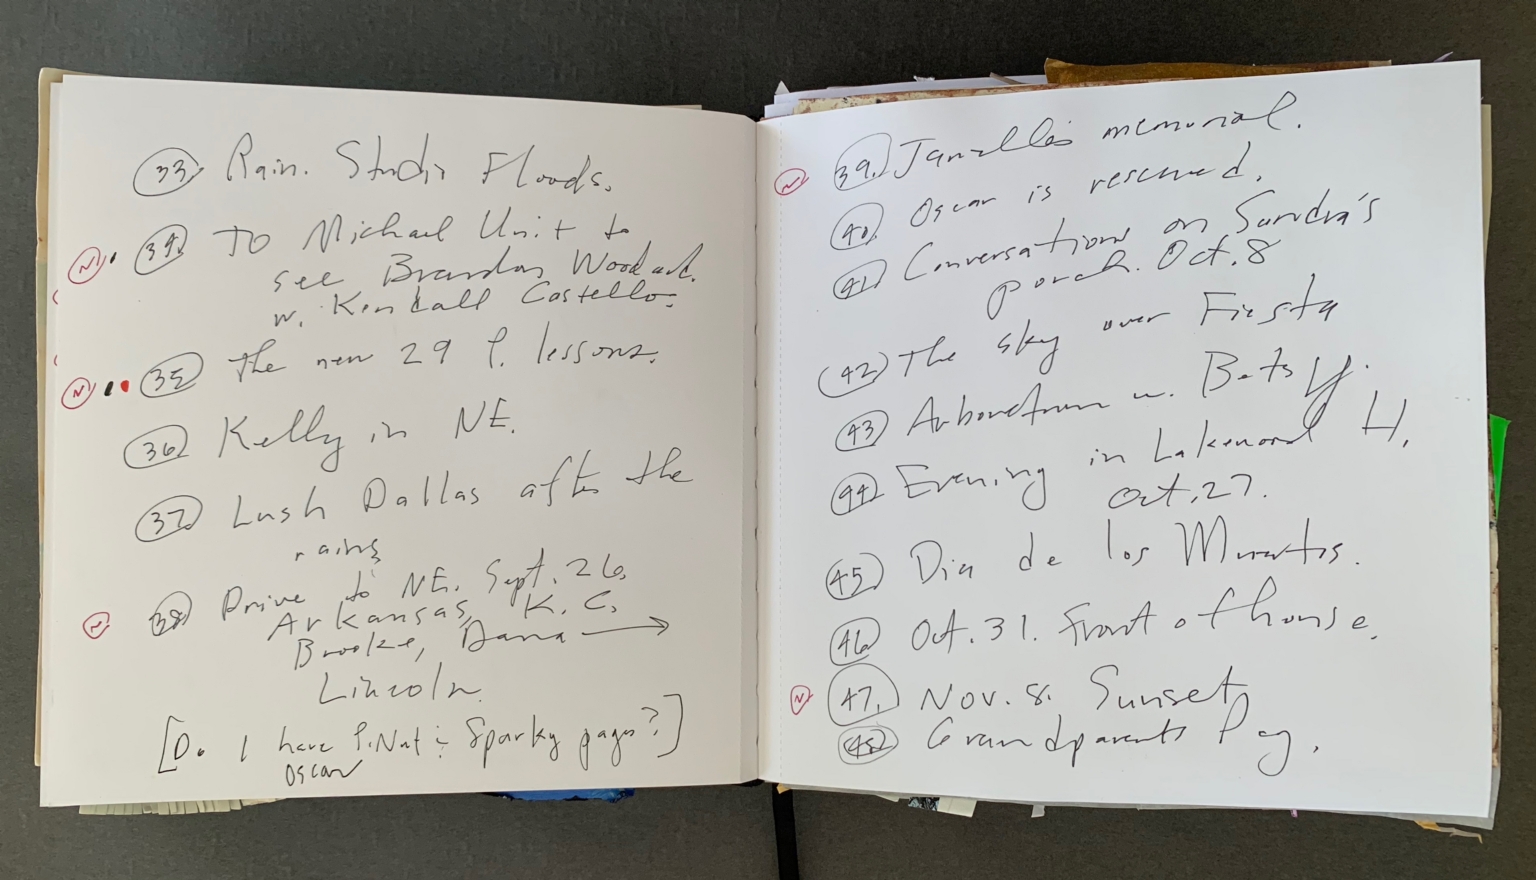 33. Rain. Studio Floods.
N 34. To Michael Unit to
see Brandon Woodard.
w. Kendall Costello.
N 35. the new 29 P. lessons.
36. Kelly in NE.
37. Lush Dallas after the
rains
N 38. Drive to NE. Sept. 26,
Arkansas, K.C.
Brooke, Dana →
Lincoln.
[Do I have P.Nut & Sparky pages?]
Oscar
N 39. Janelle's memorial.
40. Oscar is rescued.
41. Conversations on Sandra's
porch. Oct. 8
42. The sky over Fiesta
43. Arboretum w. Betsy.
44. Evening in Lakewood H.
Oct. 27.
45. Dia de los Muertos.
46. Oct. 31. Front of house.
N 47. Nov. 8. Sunset
48. Grandparents Day.